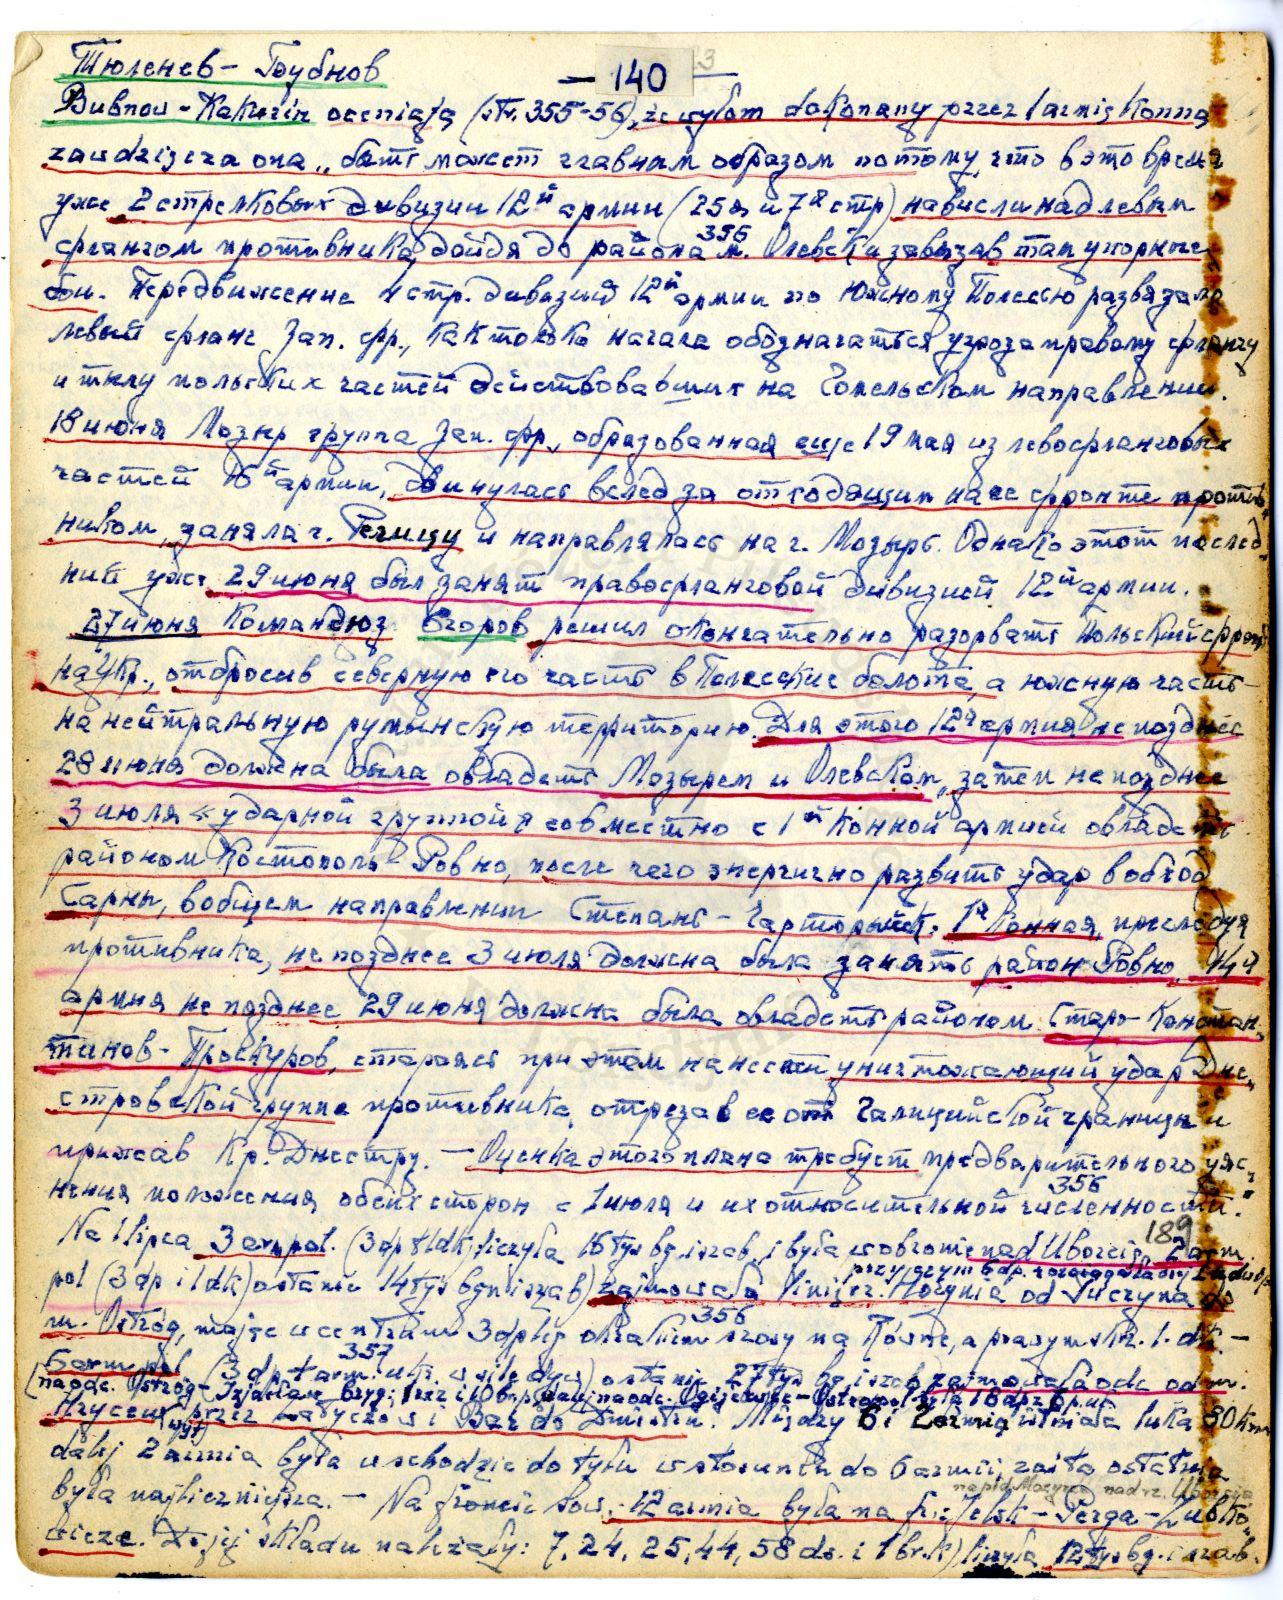 Тюленев – Бубнов
– 140 –
Bubnow – Kakurin oceniają (str. 355-56), że wyłom dokonany przez 1 armię Konną
zawdzięcza ona „быть может главным образом потому, что в это время
уже 2 стрелковых дивизии 12й армии (25я и 7я стр) нависли над левым
флангом противника, дойдя до района м. Олевск и завязав там упорные
356
бои. Передвижение 4 стр. дивизий 12й армии по Южному Полесью развязало
левый фланг Зап. фр., как только начала обозначаться угроза правому флангу
и тылу польских частей действовавших на Гомельском направлении.
18 июня Мозыр группа Зап. фр., образованная еще 19 мая из левофланговых
частей 16й армии, двинулась вслед за отходящим на ее фронте против-
ником, заняла г. Речицу и направлялась на г. Мозырь. Однако этот послед-
ний уже 29 июня был занят правофланговой дивизией 12й армии.
27 июня Командюз Егоров решил окончательно разорвать Польский фронт
на Укр., отбросив северную его часть в Полесские болота, а южную часть –
на нейтральную румынскую территорию. Для этого 12я армия не позднее
28 июня должна была овладеть Мозырем и Олевском, затем не позднее
3 июля „ударной группой" совместно с 1й Конной армией овладеть
районом Костополь – Ровно, после чего энергично развить удар в обход
Сарны, в общем направлении Степань – Чарторыйск. 1я Конная, преследуя
противника, не позднее 3 июля должна была занять район Ровно, 14я
армия не позднее 29 июня должна была овладеть районом Старо-Констан-
тинов – Проскуров, стараясь при этом нанести уничтожающий удар Дне-
стровской группе противника, отрезав ее от Галицийской границы и
прижав к р. Днестру. – Оценка этого плана требует предварительного уяс-
нения положения обеих сторон с 1 июля и их относительной численности.
356
189
Na 1 lipca 3 arm. pol. (3 dp 1 dk) liczyła 16 tys bg i szab, i była w obronie nad Uborcią, 2 arm.
pol (3 dp i 1 dk) ostanie 14 tys bgn i szab) zajmowała linię rz. Horynia od Tuczyna do
m. Ostróg, mając w centrum 3 dp leg okrakiem szosy na Równe, a prawym skrz. 1. dk. –
356
6 arm. pol (3 dp + arm. ukr. w sile dyw) ostanie 27 tys bg i szab zajmowała odc. od m.
357
przez Latyczów i Bar do Dniestru. Między 6 i 2 armią istniała luka 30 km
dalej 2 armia była uschodzie do tyłu w stosunku do 6 armii, zaś ta ostatnia
była najliczniejsza. – Na froncie sow. 12 armia była na fr. Jelsk – Perga – Lubko-
na płd Mozyrza nad rz. Uborcią
wicze. Do jej składu należały: 7, 24, 25, 44, 58 ds. i 1 br. k) liczyła 12 tys bg. i szab.